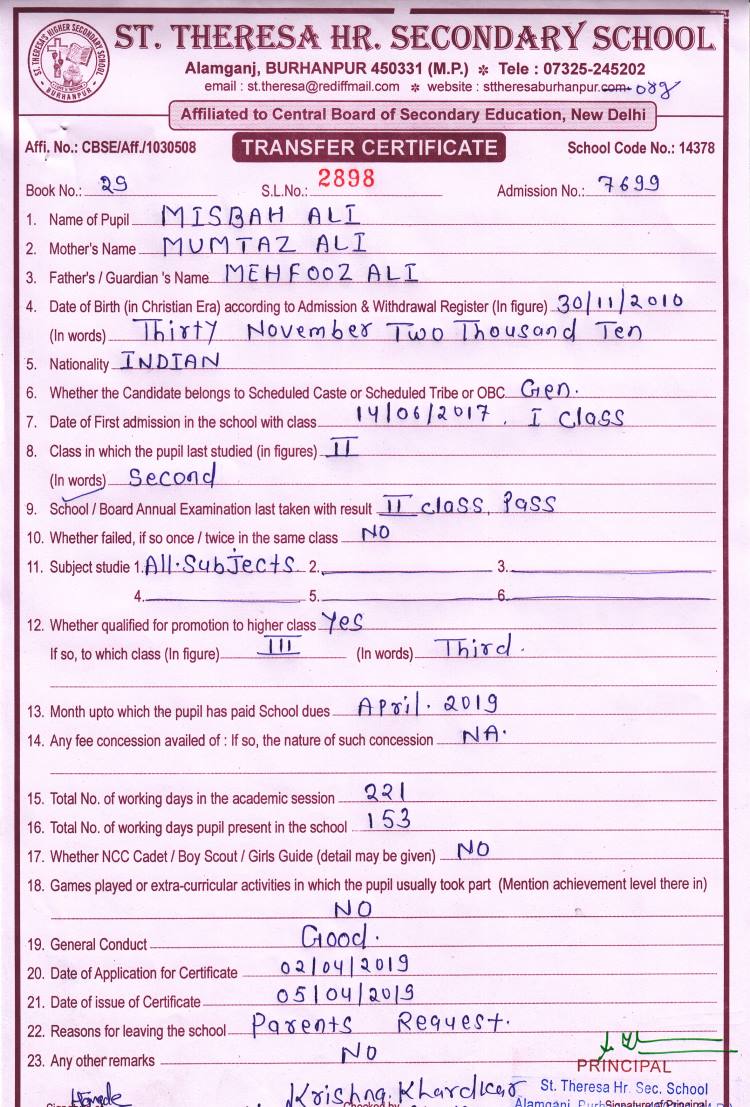 ST. THERESA HR. SECONDARY SCHOOL
ST. THERESA'S HIGHER SECONDARY SCHOOL BURHANPUR
Alamganj, BURHANPUR 450331 (M.P.) * Tele : 07325-245202
email : st.theresa@rediffmail.com * website : sttheresaburhanpur.com org
Affiliated to Central Board of Secondary Education, New Delhi
Affi. No.: CBSE/Aff./1030508 TRANSFER CERTIFICATE School Code No.: 14378
Book No.: 29 S.L.No.: 2898 Admission No.: 7699
1. Name of Pupil MISBAH ALI
2. Mother's Name MUMTAZ ALI
3. Father's / Guardian 's Name MEHFOOZ ALI
4. Date of Birth (in Christian Era) according to Admission & Withdrawal Register (In figure) 30/11/2010
(In words) Thirty November Two Thousand Ten
5. Nationality INDIAN
6. Whether the Candidate belongs to Scheduled Caste or Scheduled Tribe or OBC Gen.
7. Date of First admission in the school with class 14/06/2017, I Class
8. Class in which the pupil last studied (in figures) II
(In words) Second
9. School / Board Annual Examination last taken with result II class, Pass
10. Whether failed, if so once / twice in the same class NO
11. Subject studie 1. All.Subjects 2. 3.
4. 5. 6.
12. Whether qualified for promotion to higher class Yes
If so, to which class (In figure) III (In words) Third.
13. Month upto which the pupil has paid School dues April. 2019
14. Any fee concession availed of : If so, the nature of such concession NA.
15. Total No. of working days in the academic session 221
16. Total No. of working days pupil present in the school 153
17. Whether NCC Cadet / Boy Scout / Girls Guide (detail may be given) NO
18. Games played or extra-curricular activities in which the pupil usually took part (Mention achievement level there in)
NO
19. General Conduct Good.
20. Date of Application for Certificate 02/04/2019
21. Date of issue of Certificate 05/04/2019
22. Reasons for leaving the school Parents Request.
23. Any other remarks NO
PRINCIPAL
Krishna. Khardkar St. Theresa Hr. Sec. School
Checked by Alamganj, Signature of Principal